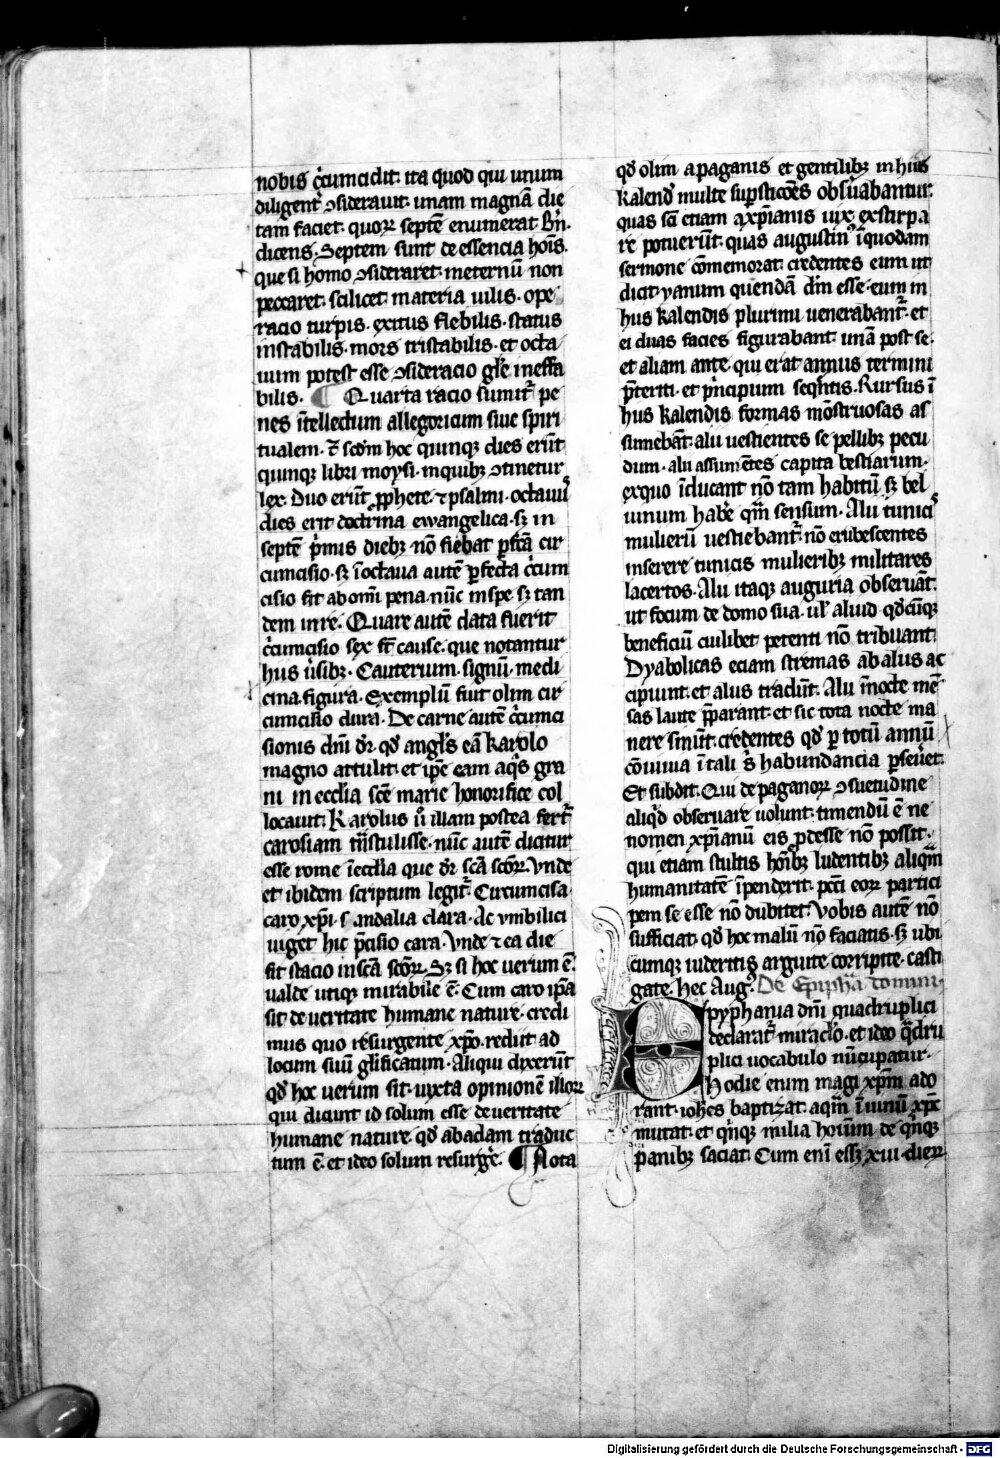 nobis c̄cumcidit. ita quod qui unum
diligent̄ ꝯsiderauit. unam magnā die
tam faciet. quoꝝ septē enumerat Bn̄.
dicens. Septem sunt de essencia hoīs.
que si homo ꝯsideraret. ineternū non
peccaret. scilicet materia uilis. ope
racio turpis. exitus flebilis. status
instabilis. mors tristabilis. et octa
uum potest esse ꝯsideracio gl̄e ineffa
bilis. ¶ Quarta racio sumit̄ pe
nes ītellectum allegoricum siue spiri
tualem. ⁊ scdm̄ hoc quinqꝫ dies erūt
quinqꝫ libri moysi. inquibꝫ ꝯtinetur
lex. Duo erūt ꝓphete. ⁊ psalmi. octauꝰ
dies erit doctrina ewangelica. sꝫ in
septē p̄mis diebꝫ nō fiebat ꝑfc̄a cir
cumcisio. sꝫ ī octaua autē ꝑfecta c̄cum
cisio fit ab om̄i pena. nūc in spe. sꝫ tan
dem in re. Quare autē data fuerit
c̄cumcisio sex st̄ cause. que notantur
hijs ūsibꝫ. Cauterium. signū. medi
cina. figura. Exemplū fuit olim cir
cumcisio dura. De carne autē c̄cumci
sionis dn̄i dr̄. qd̄ angl̄s eā karolo
magno attulit. et ip̄e eam aq̄s gra
ni in eccl̄ia sc̄e marie honorifice col
locauit. Karolus ū illam postea fert̄
carosiam tn̄stulisse. nūc autē dicitur
esse rome ī eccl̄ia que dr̄ sc̄a sc̄oꝝ. Vnde
et ibidem scriptum legit̄. Circumcisa
caro xp̄i sandalia clara. Ac vmbilici
uiget hic p̄cisio cara. Vnde ⁊ ea die
fit stacio in sc̄a sc̄oꝝ. Sꝫ si hoc uerum ē.
ualde utiqꝫ mirabile ē. Cum caro ip̄a
sit de ueritate humane nature. credi
mus quo resurgente xp̄o. redijt ad
locum suū gl̄ificatum. Aliqui dixerūt
qd̄ hoc uerum sit. iuxta opinionē illoꝝ
qui dicunt id solum esse de ueritate
humane nature. qd̄ ab adam traduc
tum ē. et ideo solum resurge. ¶ Nota
qd̄ olim a paganis et gentilibꝫ in hijs
kalend̄ multe suꝑsticōes obsūabantur.
quas sc̄i etiam a xp̄ianis uix exstirpa
re potuerūt. quas augustinꝰ ī quodam
sermone cōmemorat. credentes eum ut
dicit yanum quendā dm̄ esse. eum in
hijs kalendis plurimi uenerabant̄. et
ei duas facies figurabant. unā post se.
et aliam ante. qui erat annus termini
p̄teriti. et p̄ncipium seqn̄tis. Rursus ī
hijs kalendis formas mōstruosas as
sumebāt. alij uestientes se pellibꝫ pecu
dum. alij assumētes capita bestiarum.
ex quo īdicant nō tam habitū sꝫ bel
uinum habere qm̄ sensum. Alij tunicꝭ
mulierū uestiebant̄. nō erubescentes
inserere tunicis mulieribꝫ militares
lacertos. Alij itaqꝫ auguria obseruāt.
ut focum de domo sua. ul̄ aliud qd̄cūqꝫ
beneficiū cuilibet petenti nō tribuant.
Dyabolicas eciam strenas ab alijs ac
cipiunt. et alijs tradūt. Alij ī nocte mē
sas laute p̄parant. et sic tota nocte ma
nere sinūt. credentes qd̄ ꝑ totū annū
cōuiuia ī tali s̄ habundancia ꝑseuet̄.
Et subdit. Qui de paganoꝝ ꝯsuetudine
aliq̄d obseruare uolunt. timendū ē ne
nomen xp̄ianū eis ꝓdesse nō possit.
qui etiam stultis hoībꝫ ludentibꝫ aliqm̄
humanitatē īpenderit. pcc̄i eoꝝ partici
pem se esse nō dubitet. Vobis autē nō
sufficiat. qd̄ hoc malū nō faciatis. sꝫ ubi
cumqꝫ uideritis arguite corripite. casti
gate. Hec Augꝰ. De Epiph̄a domini
Epyphania dn̄i quadruplici
declarat̄ miraclo. et ideo q̄dru
plici uocabulo nūcupatur.
Hodie enim magi xp̄m ado
rant. ioh̄es baptizat. aqm̄ ī uinū xp̄c
mutat. et qn̄qꝫ milia hoīum de qn̄qꝫ
panibꝫ saciat. Cum enī essꝫ xiii. dieꝝ
Digitalisierung gefördert durch die Deutsche Forschungsgemeinschaft - DFG